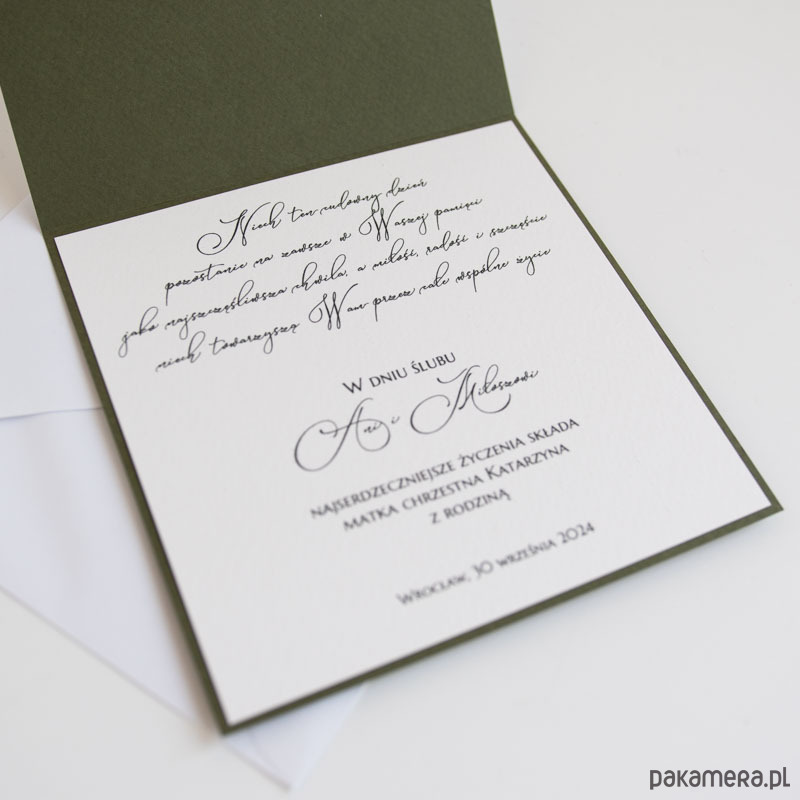 Niech ten cudowny dzień
pozostanie na zawsze w Waszej pamięci
jako najszczęśliwsza chwila, a miłość, radość i szczęście
niech towarzyszą Wam przez całe wspólne życie
W DNIU ŚLUBU
Ani i Miłoszowi
NAJSERDZECZNIEJSZE ŻYCZENIA SKŁADA
MATKA CHRZESTNA KATARZYNA
Z RODZINĄ
WROCŁAW, 30 WRZEŚNIA 2024
pakamera.pl